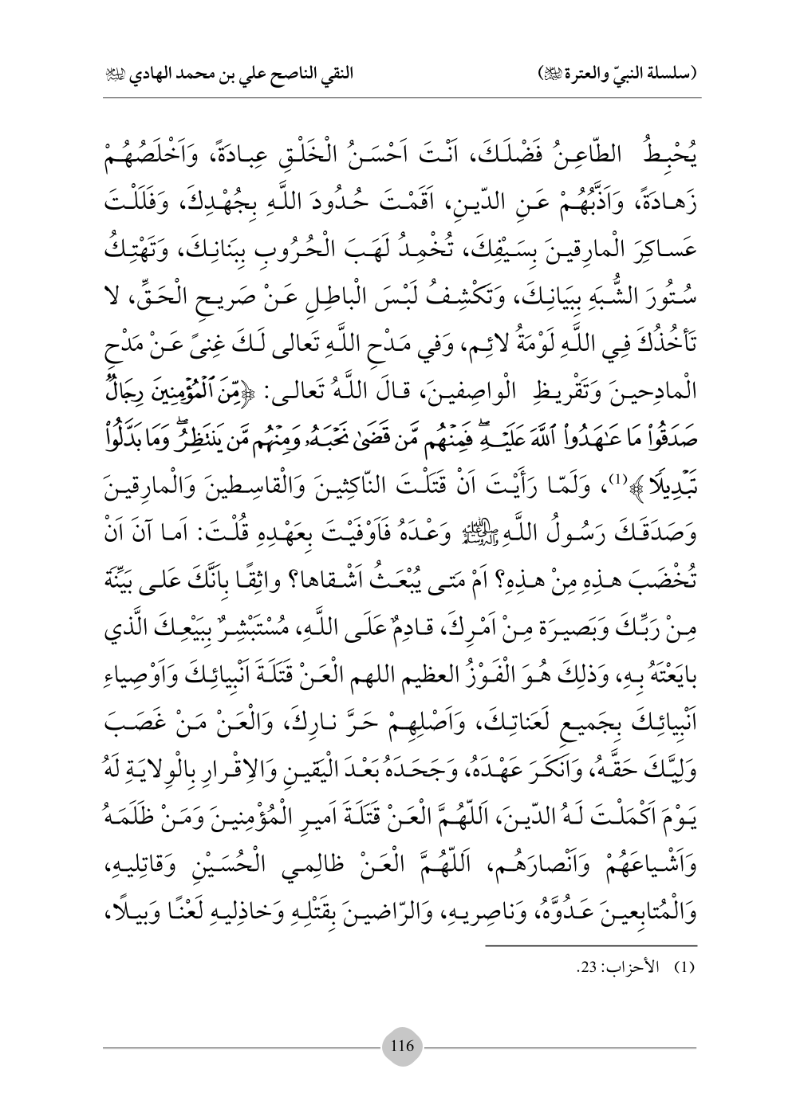 (سلسلة النبيّ والعترة ﷺ) النقي الناصح علي بن محمد الهادي
يُحْبِطُ الطّاعِنُ فَضْلَكَ، اَنْتَ اَحْسَنُ الْخَلْقِ عِبادَةً، وَاَخْلَصُهُمْ
زَهادَةً، وَاَذَّبُّهُمْ عَنِ الدّينِ، اَقَمْتَ حُدُودَ اللَّهِ بِجُهْدِكَ، وَفَلَلْتَ
عَساكِرَ الْمارِقينَ بِسَيْفِكَ، تُخْمِدُ لَهَبَ الْحُرُوبِ بِبَنانِكَ، وَتَهْتِكُ
سُتُورَ الشُّبَهِ بِبَيَانِكَ، وَتَكْشِفُ لَبْسَ الْباطِلِ عَنْ صَريحِ الْحَقِّ، لا
تَأخُذُكَ فِي اللَّهِ لَوْمَةُ لائِم، وَفي مَدْحِ اللَّهِ تَعالى لَكَ غِنىً عَنْ مَدْحِ
الْمادِحينَ وَتَقْريظِ الْواصِفينَ، قالَ اللَّهُ تَعالى: ﴿مِّنَ ٱلْمُؤْمِنِينَ رِجَالٌ
صَدَقُوا۟ مَا عَـٰهَدُوا۟ ٱللَّهَ عَلَيْهِ ۖ فَمِنْهُم مَّن قَضَىٰ نَحْبَهُۥ وَمِنْهُم مَّن يَنتَظِرُ ۖ وَمَا بَدَّلُوا۟
تَبْدِيلًا﴾(1)، وَلَمّا رَأَيْتَ اَنْ قَتَلْتَ النّاكِثِينَ وَالْقاسِطينَ وَالْمارِقينَ
وَصَدَقَكَ رَسُولُ اللَّهِ ﷺ وَعْدَهُ فَاَوْفَيْتَ بِعَهْدِهِ قُلْتَ: اَما آنَ اَنْ
تُخْضَبَ هذِهِ مِنْ هذِهِ؟ اَمْ مَتى يُبْعَثُ اَشْقاها؟ واثِقًا بِاَنَّكَ عَلى بَيِّنَة
مِنْ رَبِّكَ وَبَصيرَة مِنْ اَمْرِكَ، قادِمٌ عَلَى اللَّهِ، مُسْتَبْشِرٌ بِبَيْعِكَ الَّذي
بايَعْتَهُ بِهِ، وَذلِكَ هُوَ الْفَوْزُ العظيم اللهم الْعَنْ قَتَلَةَ اَنْبِيائِكَ وَاَوْصِياءِ
اَنْبِيائِكَ بِجَميعِ لَعَناتِكَ، وَاَصْلِهِمْ حَرَّ نارِكَ، وَالْعَنْ مَنْ غَصَبَ
وَلِيَّكَ حَقَّهُ، وَاَنْكَرَ عَهْدَهُ، وَجَحَدَهُ بَعْدَ الْيَقينِ وَالاِقْرارِ بِالْوِلايَةِ لَهُ
يَوْمَ اَكْمَلْتَ لَهُ الدّينَ، اَللّهُمَّ الْعَنْ قَتَلَةَ اَميرِ الْمُؤْمِنينَ وَمَنْ ظَلَمَهُ
وَاَشْياعَهُمْ وَاَنْصارَهُم، اَللّهُمَّ الْعَنْ ظالِمي الْحُسَيْنِ وَقاتِليهِ،
وَالْمُتابِعينَ عَدُوَّهُ، وَناصِريهِ، وَالرّاضينَ بِقَتْلِهِ وَخاذِليهِ لَعْنًا وَبيلًا،
(1) الأحزاب: 23.
116